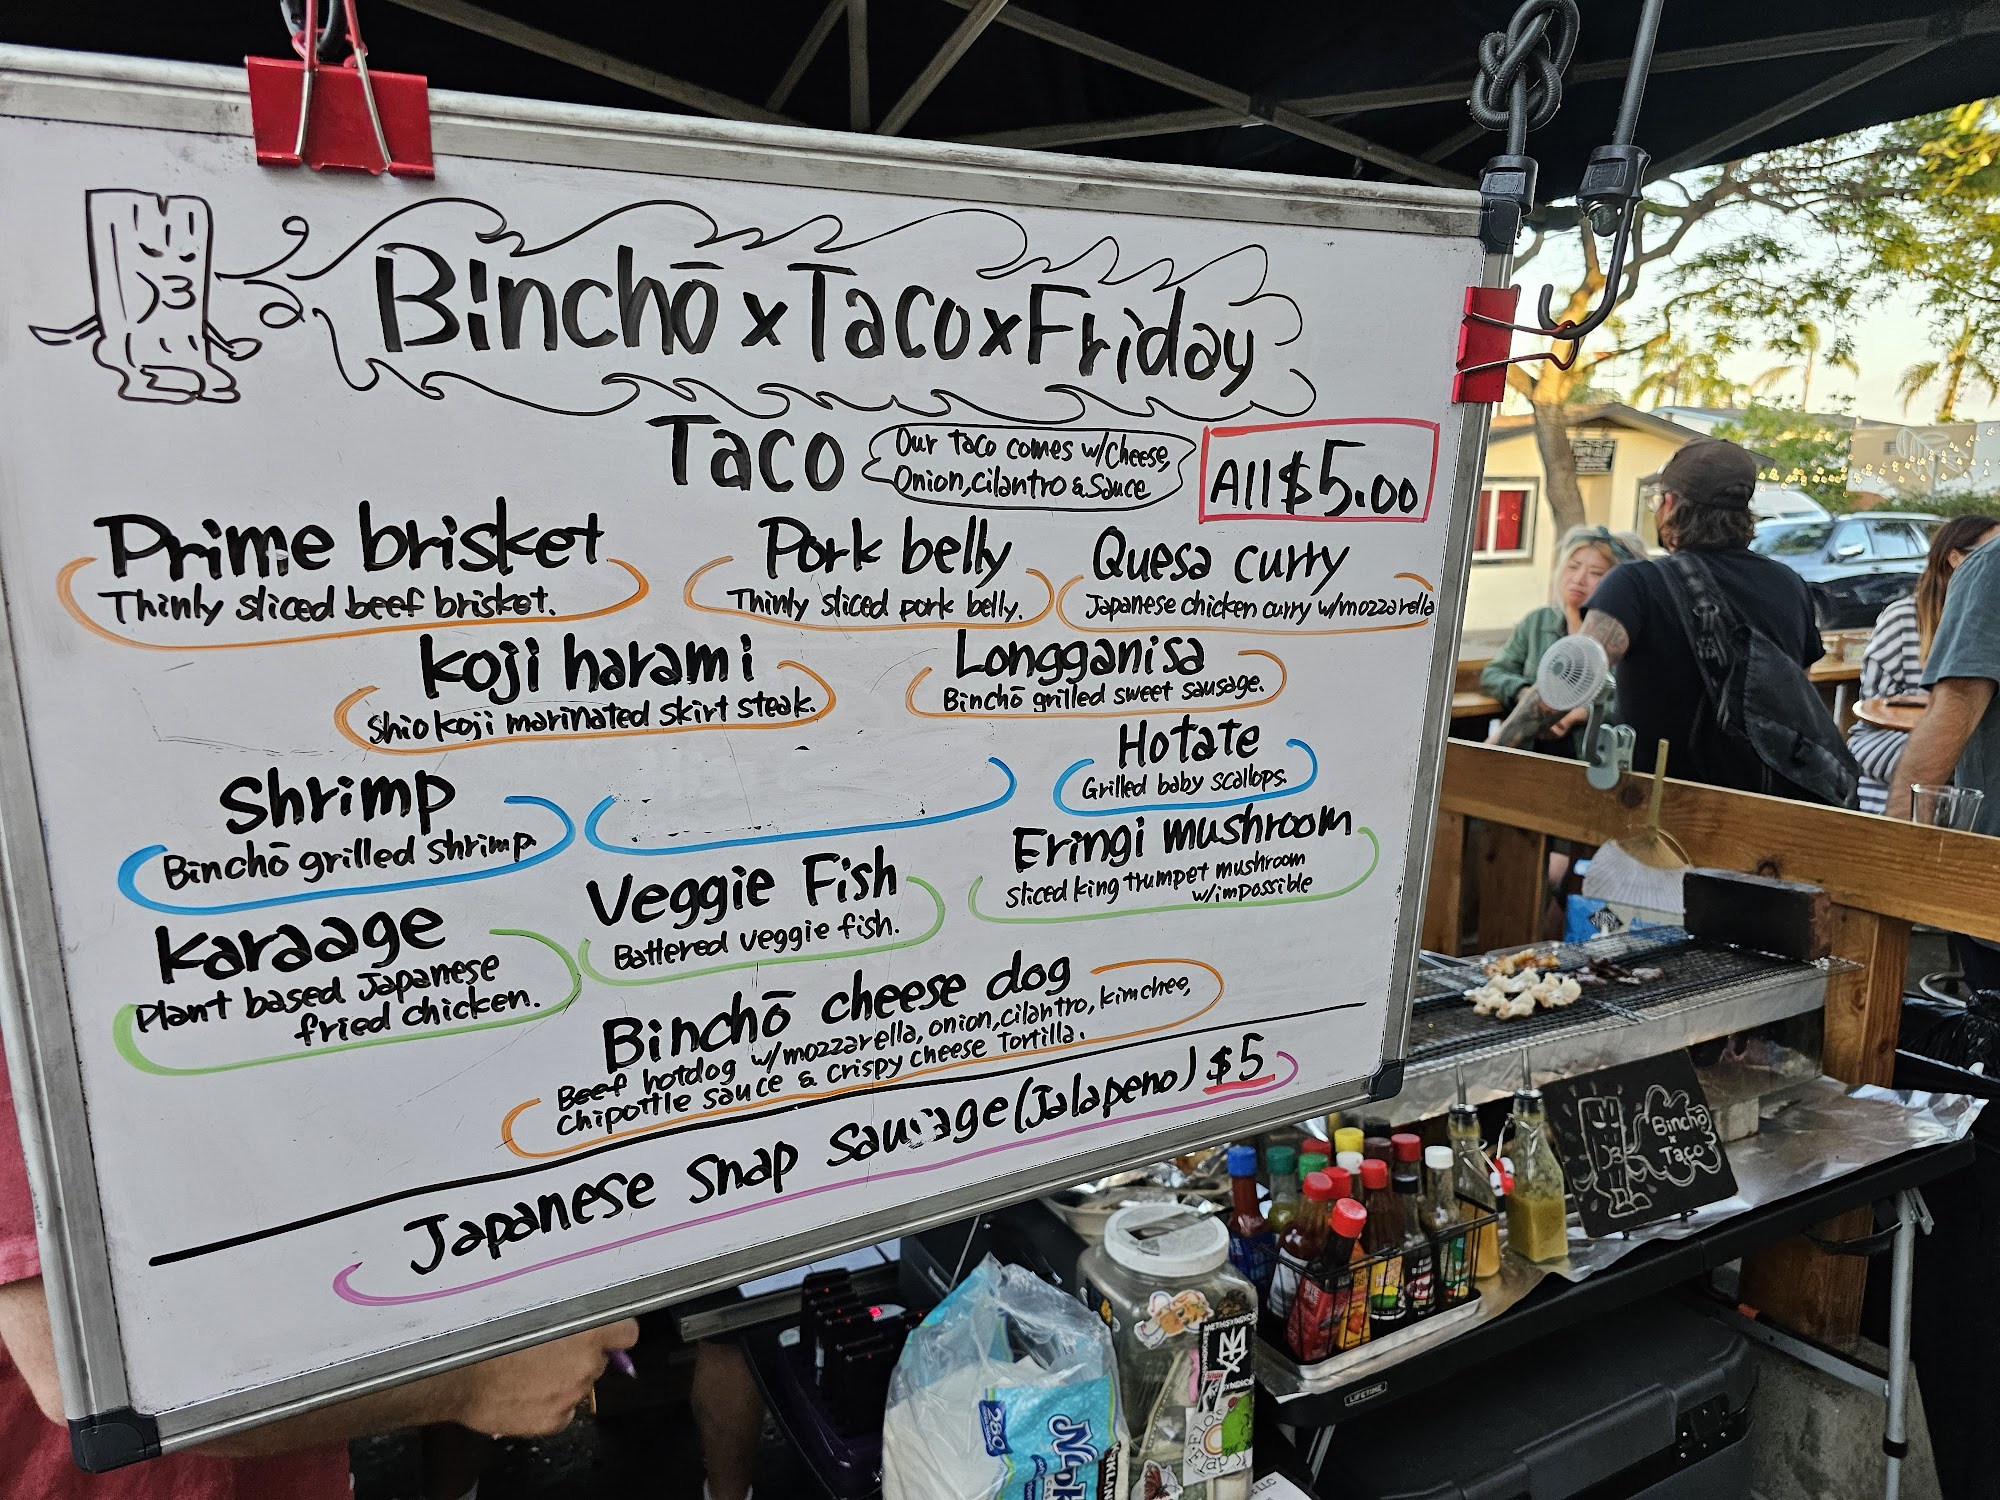 Binchō x Taco x Friday
Taco
Our Taco comes w/cheese,
Onion, cilantro & sauce
All $5.00
Prime brisket
Thinly sliced beef brisket.
Pork belly
Thinly sliced pork belly.
Quesa curry
Japanese chicken curry w/mozzarella
Koji harami
Shio koji marinated skirt steak.
Longganisa
Binchō grilled sweet sausage.
Shrimp
Binchō grilled shrimp.
Hotate
Grilled baby scallops.
Karaage
Plant based Japanese
fried chicken.
Veggie Fish
Battered veggie fish.
Eringi mushroom
Sliced king trumpet mushroom
w/impossible
Binchō cheese dog
Beef hotdog w/mozzarella, onion, cilantro, kimchee,
chipotle sauce & crispy cheese tortilla.
Japanese snap sausage (Jalapeno) $5
Binchō
x
Taco
LIFETIME
280